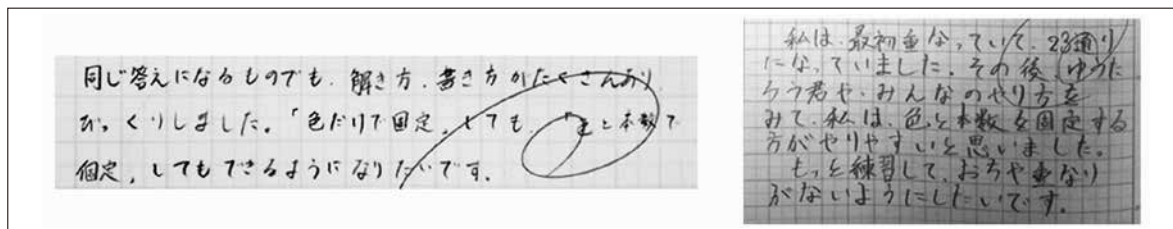 同じ答えになるものでも、解き方、書き方がたくさんあり
びっくりしました。「色だけで固定」しても、「色と本数で
個定」してもできるようになりたいです。
私は、最初重なっていて、23通り
になっていました。その後、ゆうた
ろう君や、みんなのやり方を
みて、私は、色と本数を固定する
方がやりやすいと思いました。
もっと練習して、おちや重なり
がないようにしたいです。